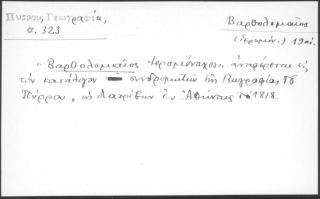 Πύρρου, Γεωγραφία,
σ. 323
Βαρθολομαῖος
(Ἱερομόν.) 19αἰ.
"Βαρθολομαῖος Ἱερομόναχος", ἀναφέρεται εἰς
τὸν κατάλογον συνδρομητῶν τῆς Γεωγραφίας τοῦ
Πύρρου, ὡς διατρίβων ἐν Ἀθήναις τὸ 1818.